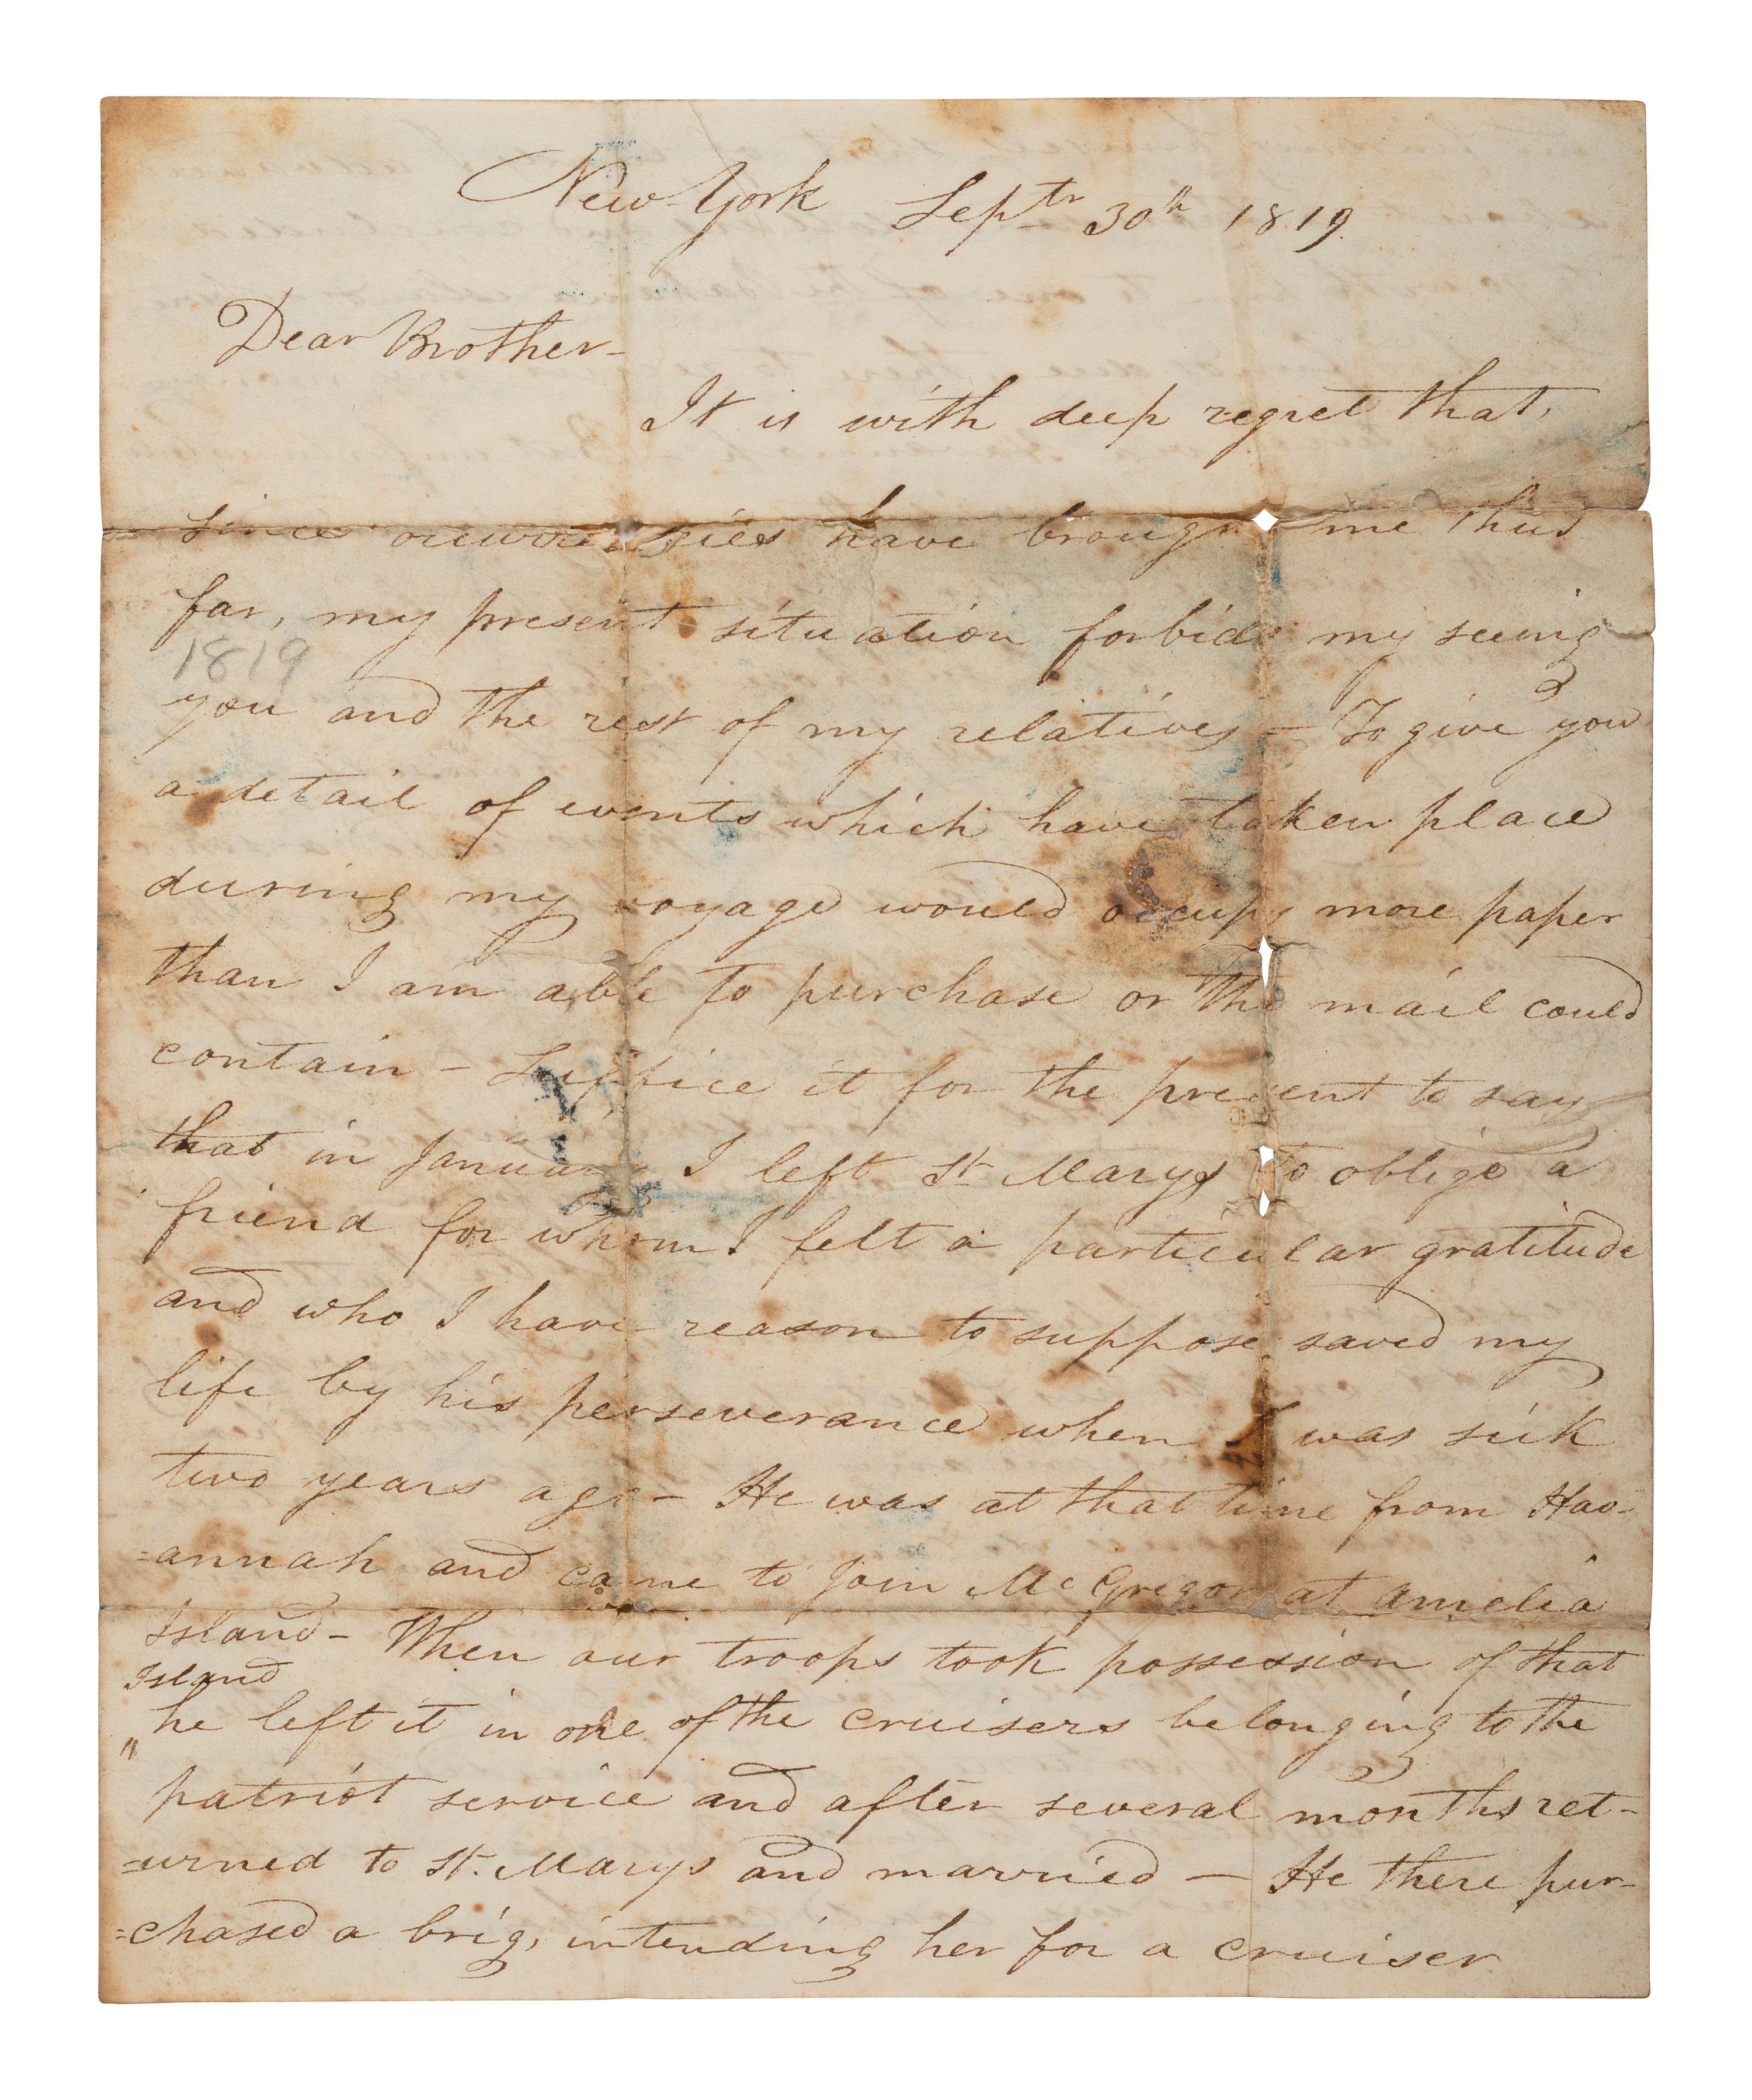 New-York Septr 30th 1819.
Dear Brother-
It is with deep regret that,
since have brought me thus
far, my present situation forbids my seeing
1819
you and the rest of my relatives - To give you
a detail of events which have taken place
during my voyage would occupy more paper
than I am able to purchase or the mail could
contain - Suffice it for the present to say
that in January I left St Marys to oblige a
friend for whom I felt a particular gratitude
and who I have reason to suppose saved my
life by his perseverance when I was sick
two years ago - He was at that time from Hav-
=annah and came to join McGregor at Amelia
Island - When our troops took possession of that
Island
" he left it in one of the cruisers belonging to the
patriot service and after several months ret-
=urned to St. Marys and married - He there pur-
=chased a brig, intending her for a cruiser